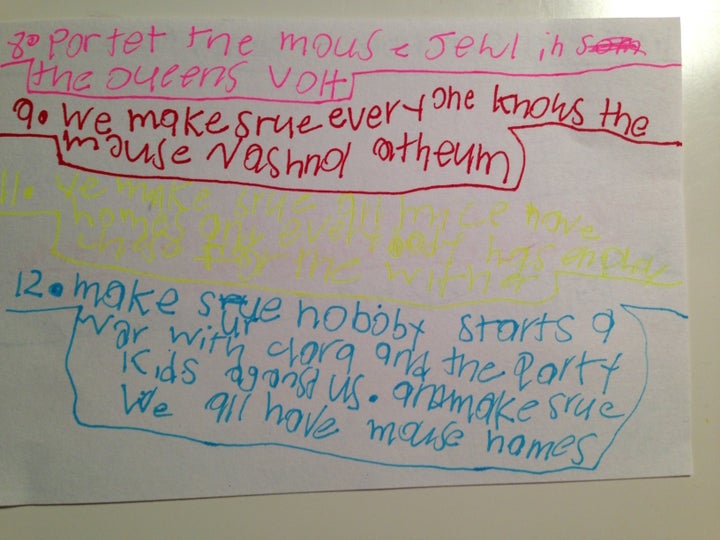 8. Portet the mous e Jewl in
the Queens Volt
9. We make srue every one knows the
mouse Nashnol atheum
11. We make srue all mice have
homes and every body has
12. make srue noboby starts a
war with clara and the party
Kids against us. and make srue
We all have mouse names